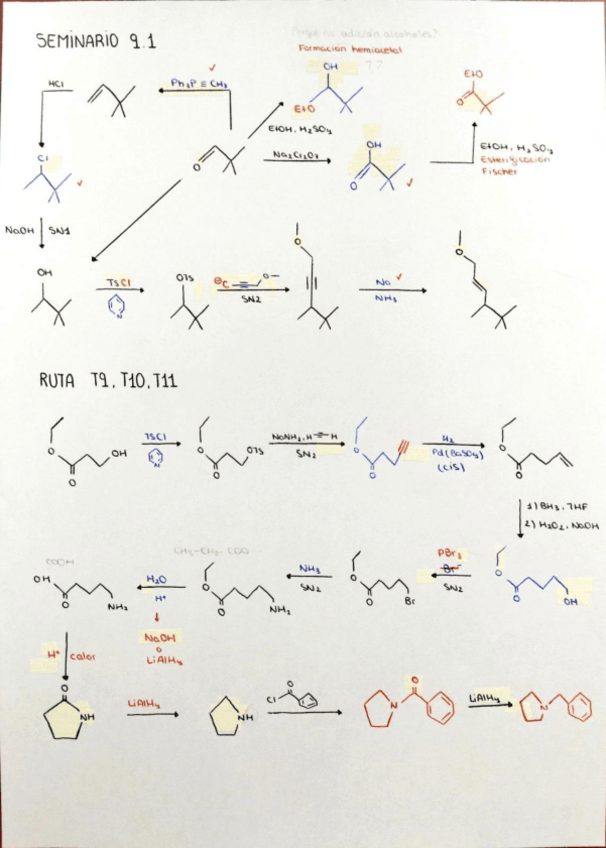 SEMINARIO 9.1
¿qué no adición alcoholes?
Formación hemiacetal
??
HCl
Ph₃P≡CH₂
✓
OH
EtO
EtO
O
EtOH, H₂SO₄
Cl
✓
O
Na₂Cr₂O₇
OH
O
✓
EtOH, H₂SO₄
Esterificación
Fischer
NaOH
SN1
OH
TsCl
N
OTs
⊖C
O
SN2
O
Na ✓
NH₃
O
RUTA T9, T10, T11
O
O
OH
TSCl
N
O
O
OTS
NaNH₂, H≡H
SN2
O
O
H₂
Pd(BaSO₄)
(cis)
O
O
1) BH₃, THF
2) H₂O₂, NaOH
COOH
OH
O
NH₂
H₂O
H⁺
NaOH
o
LiAlH₄
CH₂-CH₂-COO
O
O
NH₂
NH₃
SN2
O
O
Br
PBr₃
Br⁻
SN2
O
O
OH
H⁺
calor
O
NH
LiAlH₄
NH
Cl
O
N
O
LiAlH₄
N